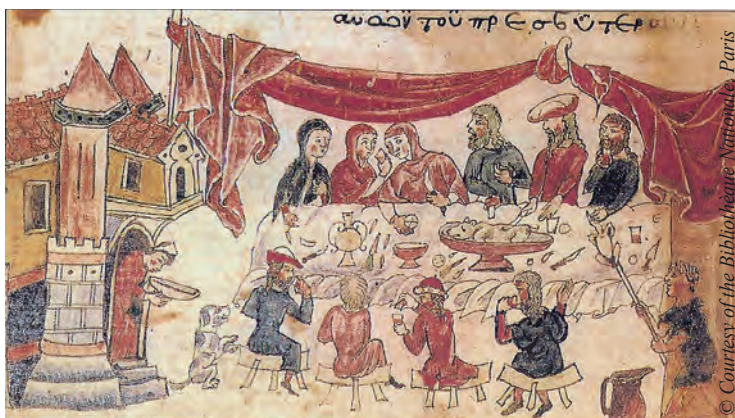 τοῦ πρεσβϋτερου
© Courtesy of the Bibliothèque Nationale, Paris